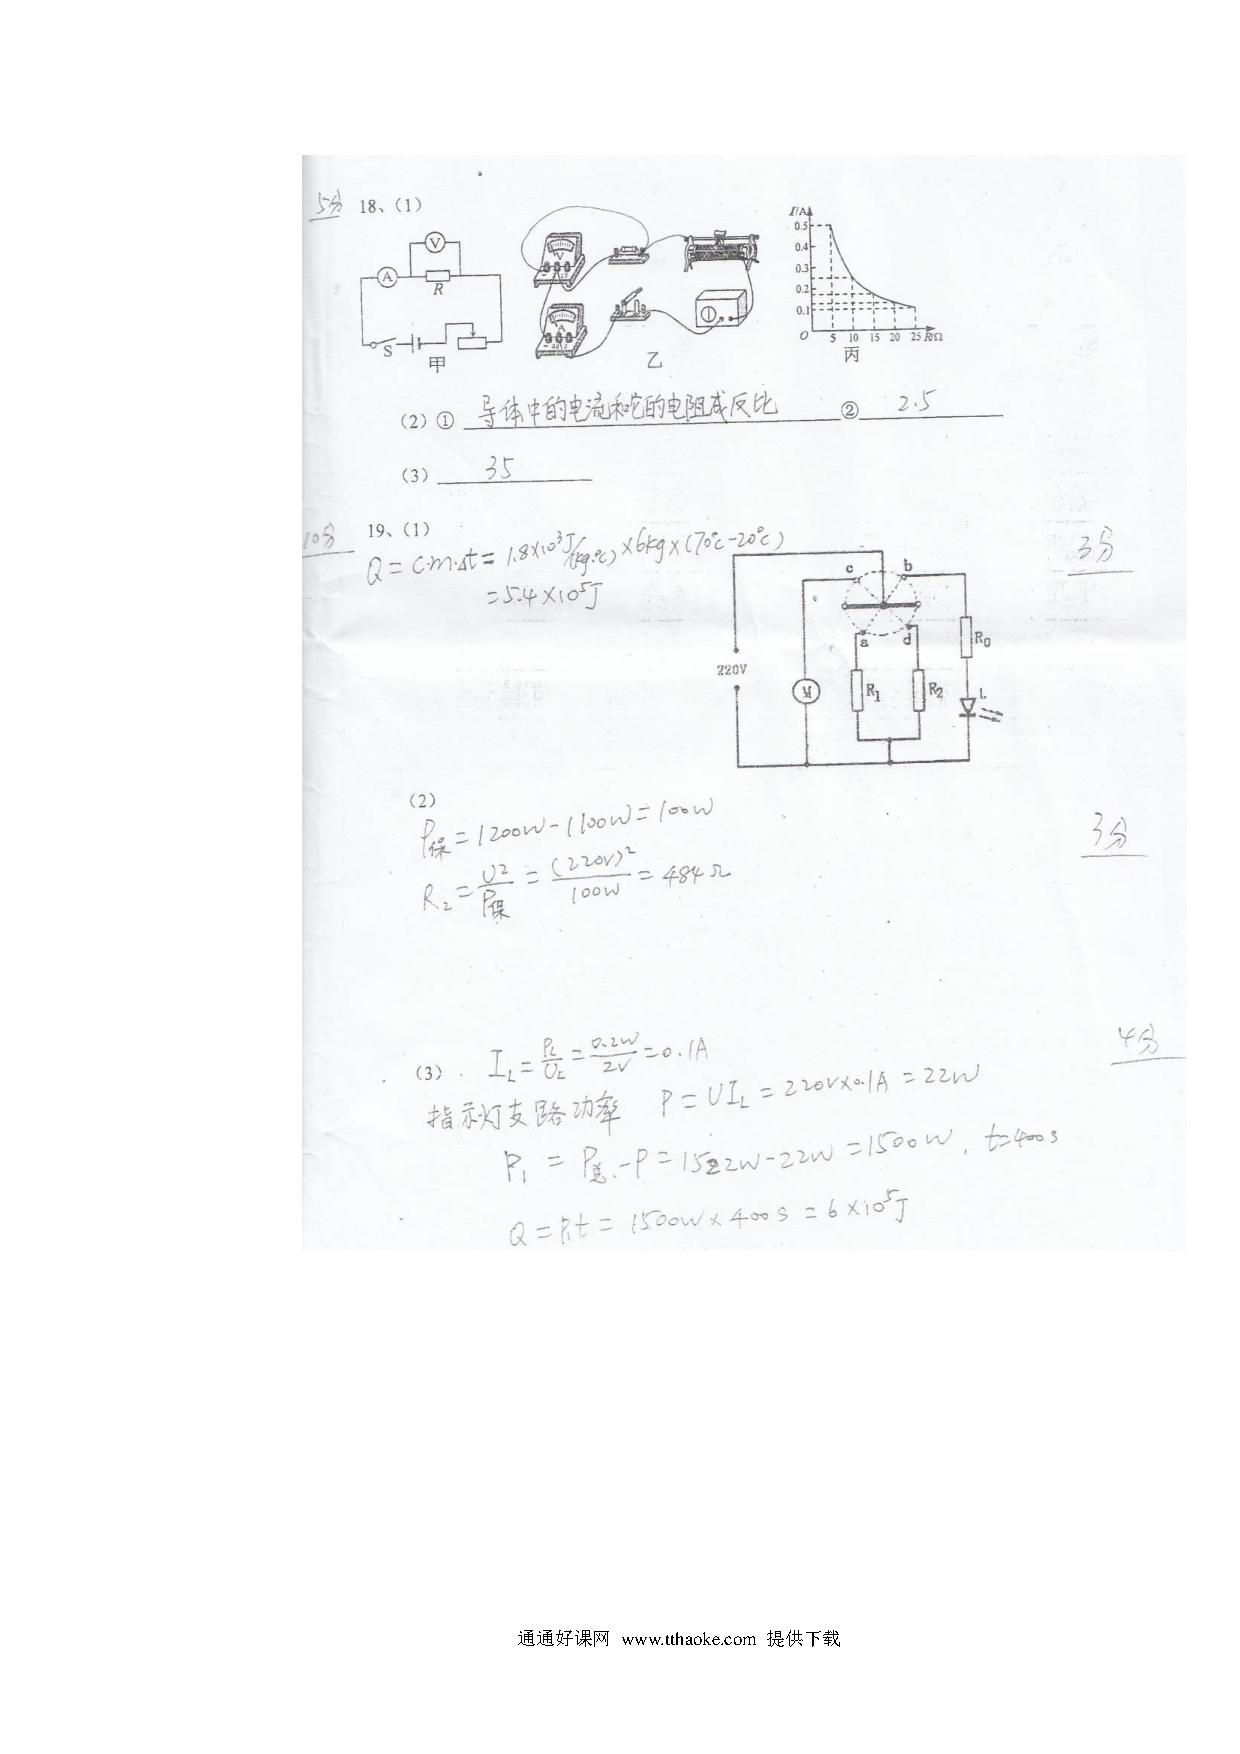 5分 18、(1)
I/A
0.5
0.4
0.3
0.2
0.1
O 5 10 15 20 25 R/Ω
V
A
R
S
甲
乙
丙
(2)① 导体中的电流和它的电阻成反比 ② 2.5
(3) 35
10分 19、(1)
Q=c·m·Δt=1.8×10³J/(kg·℃)×6kg×(70℃-20℃)
=5.4×10⁵J
3分
c b
a d
R₀
220V
M
R₁
R₂
L
(2)
P保=1200W-1100W=100W
3分
R₂=U²/P保=(220V)²/100W=484Ω
4分
(3) I_L=P_L/U_L=0.2W/2V=0.1A
指示灯支路功率 P=UI_L=220V×0.1A=22W
P₁=P总-P=1522W-22W=1500W, t=400s
Q=P₁t=1500W×400s=6×10⁵J
通通好课网 www.tthaoke.com 提供下载